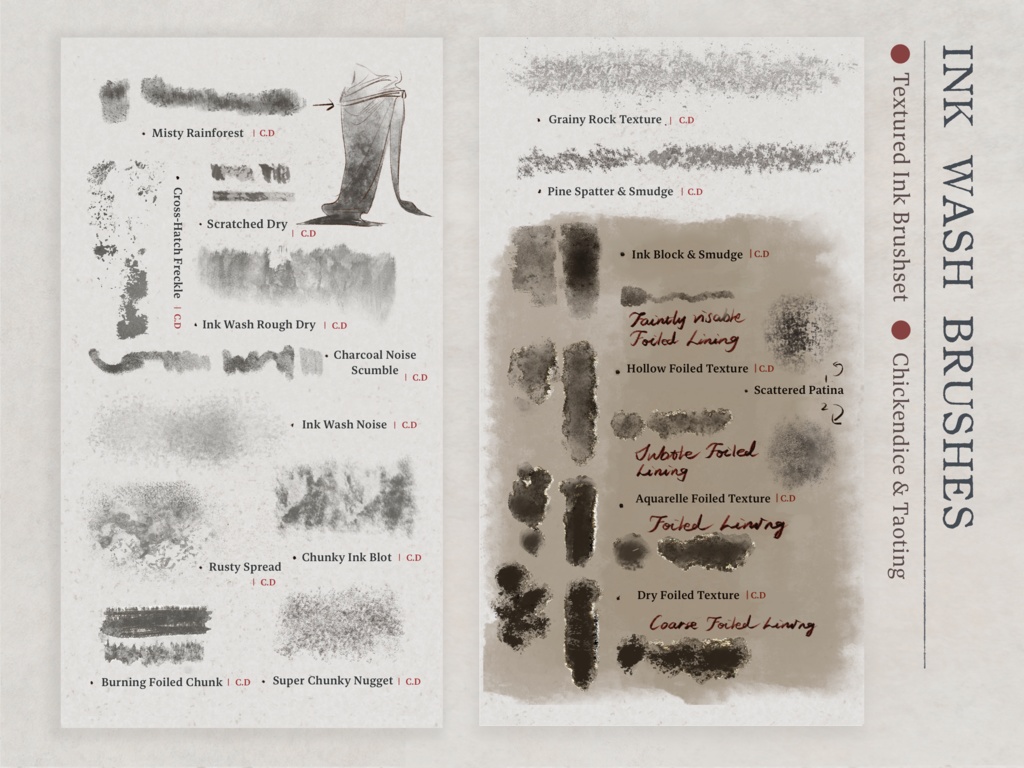 INK WASH BRUSHES
Textured Ink Brushset
Chickendice & Taoting
Misty Rainforest | C.D
Cross-Hatch Freckle | C.D
Scratched Dry | C.D
Ink Wash Rough Dry | C.D
Charcoal Noise
Scumble | C.D
Ink Wash Noise | C.D
Chunky Ink Blot | C.D
Rusty Spread
| C.D
Burning Foiled Chunk | C.D
Super Chunky Nugget | C.D
Grainy Rock Texture | C.D
Pine Spatter & Smudge | C.D
Ink Block & Smudge | C.D
Faintly visable
Foiled Lining
Hollow Foiled Texture | C.D
Scattered Patina
1
2
Subtle Foiled
Lining
Aquarelle Foiled Texture | C.D
Foiled Lining
Dry Foiled Texture | C.D
Coarse Foiled Lining